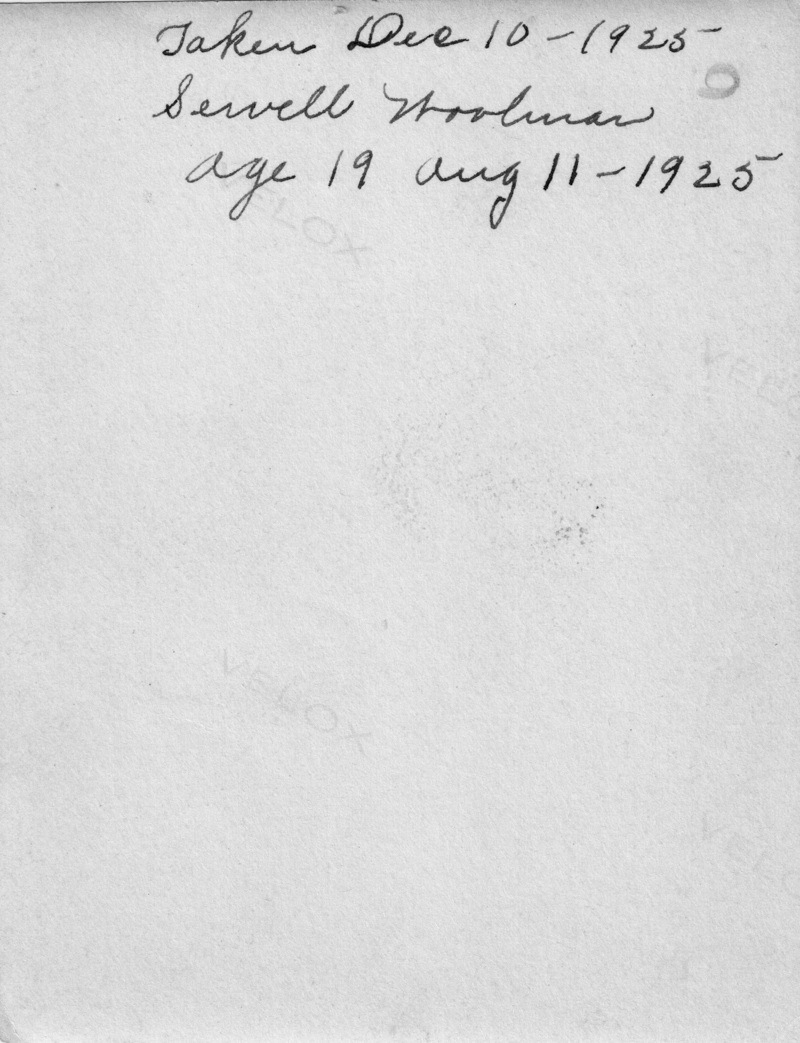 Taken Dec 10 - 1925
Sewell Woolman
age 19 aug 11 - 1925
VELOX
VELOX
VELOX
VELOX